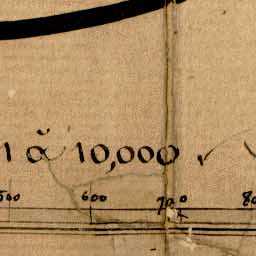 1 à 10,000
500 600 700 80